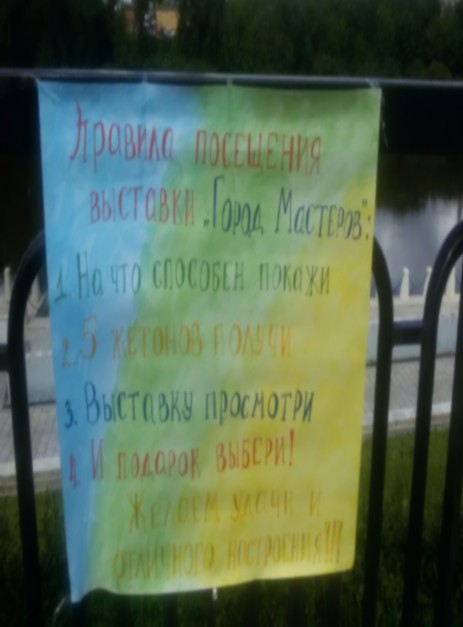 Правила посещения
выставки „Город Мастеров":
1. На что способен покажи
2. 5 жетонов получи
3. Выставку просмотри
4. И подарок выбери!
Желаем удачи и
отличного настроения!!!